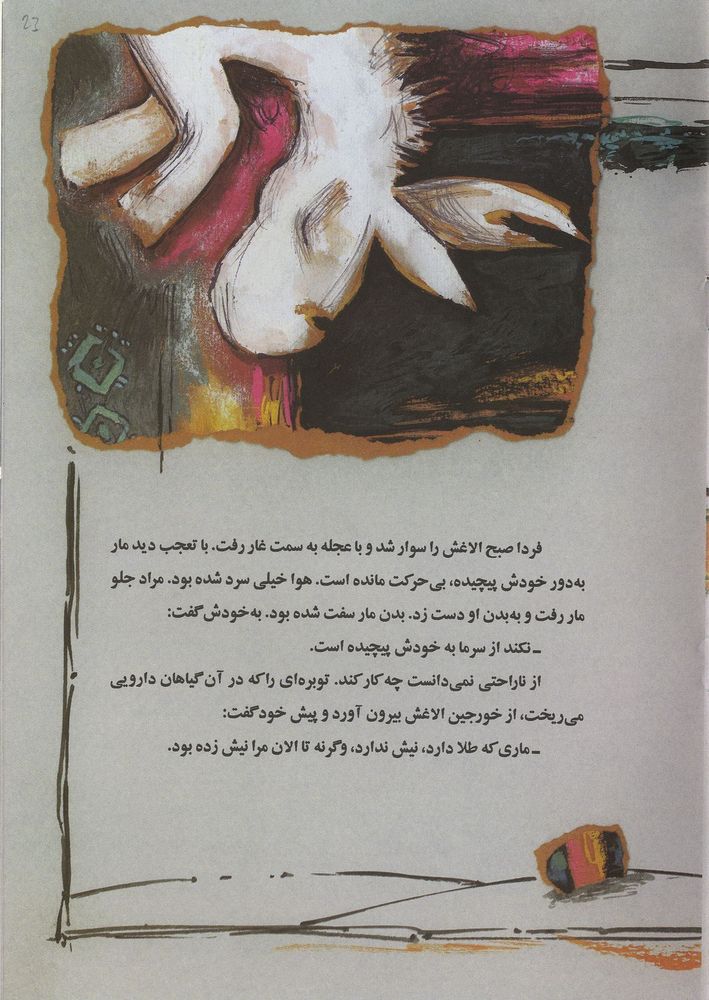 23
فردا صبح الاغش را سوار شد و با عجله به سمت غار رفت. با تعجب دید مار
به‌دور خودش پیچیده، بی‌حرکت مانده است. هوا خیلی سرد شده بود. مراد جلو
مار رفت و به‌بدن او دست زد. بدن مار سفت شده بود. به‌خودش گفت:
ـ نکند از سرما به خودش پیچیده است.
از ناراحتی نمی‌دانست چه کار کند. توبره‌ای را که در آن گیاهان دارویی
می‌ریخت، از خورجین الاغش بیرون آورد و پیش خود گفت:
ـ ماری که طلا دارد، نیش ندارد، وگرنه تا الان مرا نیش زده بود.